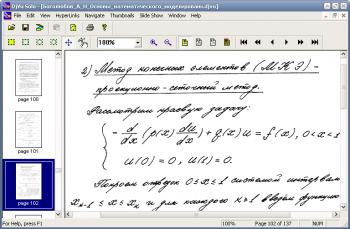 DjVu Solo - [Боголюбов_А_Н_Основы_математического_моделирования.djvu]
File Edit View HyperLinks Navigate Thumbnails Slide Show Window Help
100%
page 100
page 101
page 102
2) Метод конечных элементов (МКЭ) -
проекционно-сеточный метод.
Рассмотрим краевую задачу:
- d/dx (p(x) du/dx) + q(x) u = f(x), 0 < x < 1
u(0) = 0, u(1) = 0.
Покроем отрезок 0 ≤ x ≤ 1 системой интервалов
x_{k-1} ≤ x ≤ x_k и для каждого k ≥ 1 введём функцию
For Help, press F1
100%
Page 102 of 137
NUM